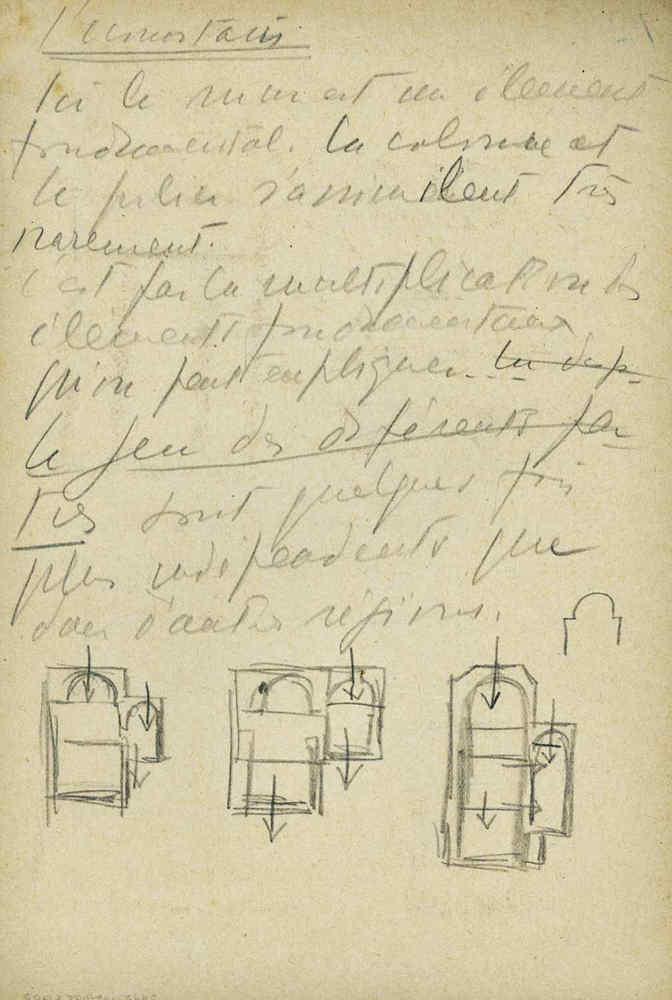 Ici le mur est un élément
fondamental. La colonne et
le pilier s'assimilent très
rarement.
c'est par la multiplication des
éléments fondamentaux
qu'on peut expliquer.
le jeu des différents
sont quelques fois
plus indépendants que
dans d'autres régions.